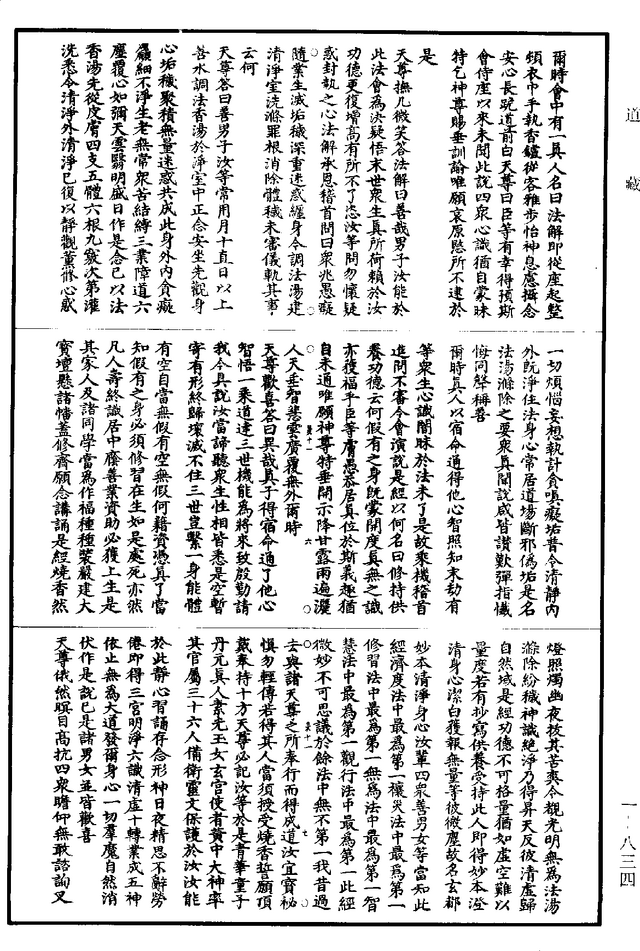 道藏
爾時會中有一真人名曰法解即從座起整
領衣巾手執香鑪從容雅步怡神息慮攝念
安心長跪道前白天尊曰臣等有幸得預斯
會侍座以來未聞此說四衆心識猶自蒙昧
特乞神尊賜垂訓諭唯願哀原愍所不逮於
是
天尊撫几微笑答法解曰善哉男子汝能於
此法會為決疑悟末世衆生真所荷賴於汝
功德更復增高有所不了恣汝等問勿懷疑
惑封執之心法解承恩稽首問曰衆兆愚癡
隨業生滅垢穢深重迷惑纏身令調法湯建
清淨室洗滌罪根消除體穢未審儀軌其事
云何
天尊答曰善男子汝等常用月十直日以上
善水調法香湯於淨室中正念安坐先觀身
心垢穢聚積無量迷惑共成此身外內貪癡
麤細不淨生老無常衆苦結縛三業障道六
塵覆心如彌天雲翳明盛日作是念已以法
香湯先從皮膚四支五體六根九竅次第灌
洗悉令清淨外清淨已復以靜觀薰修心惑
一切煩惱妄想執計貪嗔癡垢普令清靜內
外既淨住法身心常居道場斷邪偽垢是名
法湯滌除之要衆真聞說咸皆讚歎彈指懺
悔同聲稱善
爾時真人以宿命通得他心智照知末劫有
等衆生心識闇昧於法未了是故乘機稽首
進問不審今會演說是經以何名曰修持供
養功德云何假有之身既蒙開度真無之識
亦獲福乎臣等膚愚忝居真位於斯義趣猶
自未通唯願神尊特垂開示降甘露雨遍灑
人天垂智慧雲廣覆無外爾時
天尊歡喜答曰異哉真子得宿命通了他心
智悟一乘道達三世機能為將來致殷勤請
我今具說汝當諦聽衆生性相皆悉是空暫
寄有形終歸壞滅不住三世豈繫一身能體
有空自當無假有空無假何藉資憑真了當
知假有之身必須修習在生如是處死亦然
凡人壽終識居中廕善業資助必獲上生是
其家人及諸同學當為作福種種裝嚴建大
寶壇懸諸幡蓋修齋願念講誦是經燒香然
燈照燭幽夜拔其苦爽令覩光明無為法湯
滌除紛穢神識絶淨乃得昇天反彼清虛歸
自然域是經功德不可格量猶如虛空難以
量度若有抄寫供養受持此人即得妙本澄
清身心潔白獲報無量等彼微塵故名玄都
妙本清淨身心汝輩四衆善男女等當知此
經濟度法中最為第一禳災法中最為第一
修習法中最為第一無為法中最為第一智
慧法中最為第一觀行法中最為第一此經
微妙不可思議於餘法中無不第一我昔過
去與諸天尊之所奉行而得成道汝宜寶祕
慎勿輕傳若得其人當須授受燒香誓願頂
戴奉持十方天尊必記汝等於是青華童子
丹元真人素光玉女玄宮使者黃中大神率
其官屬三十六人備衛靈文保護於汝汝能
於此靜心習誦存念形神日夜精思不辭勞
倦即得三宮明淨六識清虛十轉業成五神
依止無為大道發爾身心一切羣魔自然消
伏作是說已是諸男女並皆歡喜
天尊俄然瞑目高抗四衆瞻仰無敢諮詢叉
一·八三四